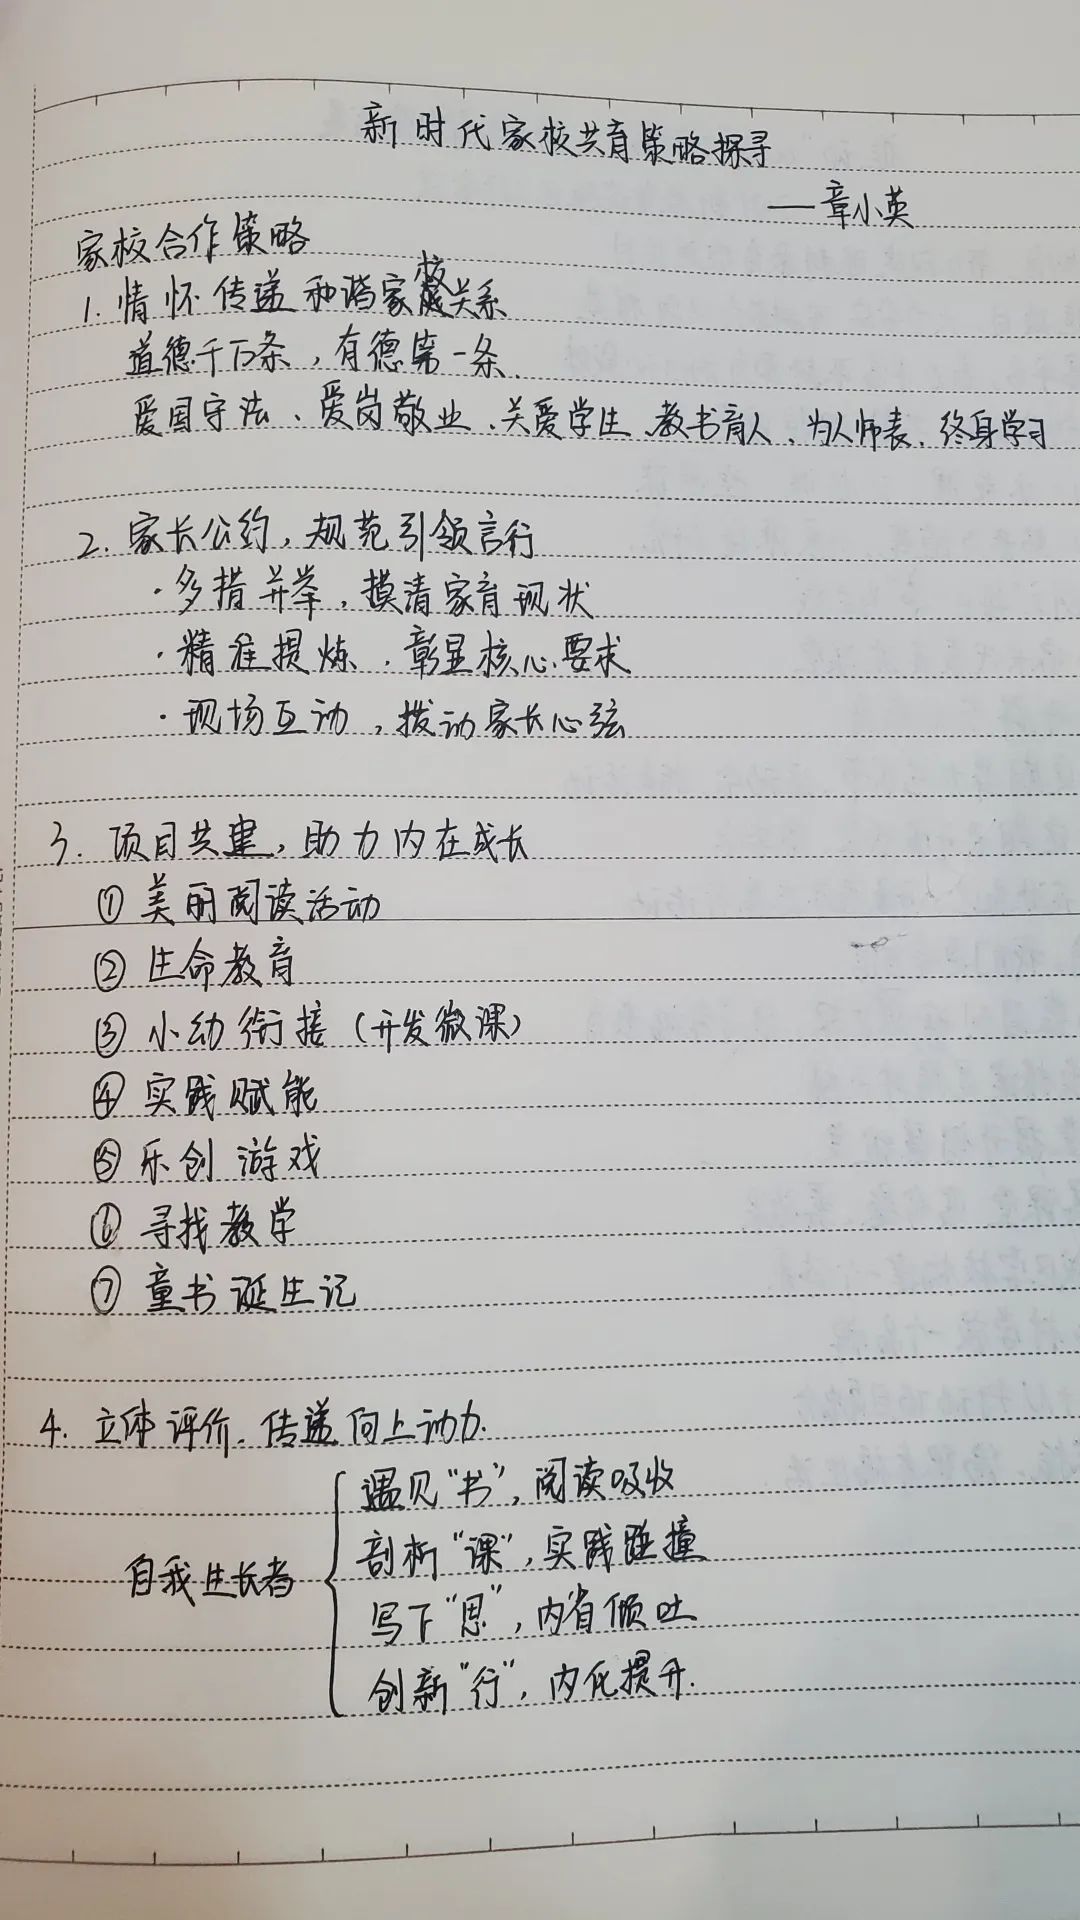 新时代家校共育策略探寻
——章小英
家校合作策略
1. 情怀传递和谐家校关系
道德千万条，有德第一条.
爱国守法、爱岗敬业、关爱学生、教书育人、为人师表、终身学习
2. 家长公约，规范引领言行
·多措并举，摸清家育现状
·精准提炼，彰显核心要求
·现场互动，拨动家长心弦
3. 项目共建，助力内在成长
① 美丽阅读活动
② 生命教育
③ 小幼衔接（开发微课）
④ 实践赋能
⑤ 乐创游戏
⑥ 寻找教学
⑦ 童书诞生记
4. 立体评价，传递向上动力.
自我生长者
遇见“书”，阅读吸收
剖析“课”，实践碰撞
写下“思”，内省倾吐
创新“行”，内化提升.